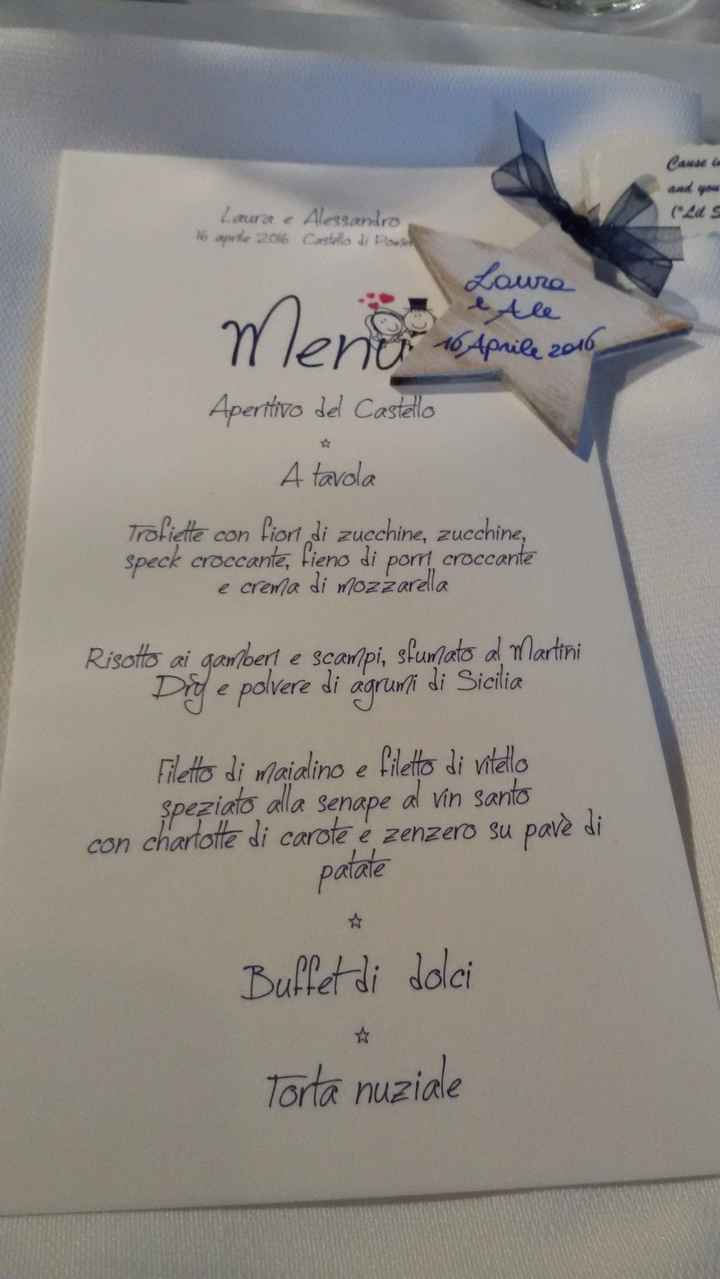 Laura e Alessandro
16 aprile 2016 Castello di
Menu
Laura
e Ale
16 Aprile 2016
Cause
and you
("Lil
Aperitivo del Castello
A tavola
Trofiette con fiori di zucchine, zucchine,
speck croccante, fieno di porri croccante
e crema di mozzarella
Risotto ai gamberi e scampi, sfumato al Martini
Dry e polvere di agrumi di Sicilia
Filetto di maialino e filetto di vitello
speziato alla senape al vin santo
con charlotte di carote e zenzero su pavè di
patate
Buffet di dolci
Torta nuziale